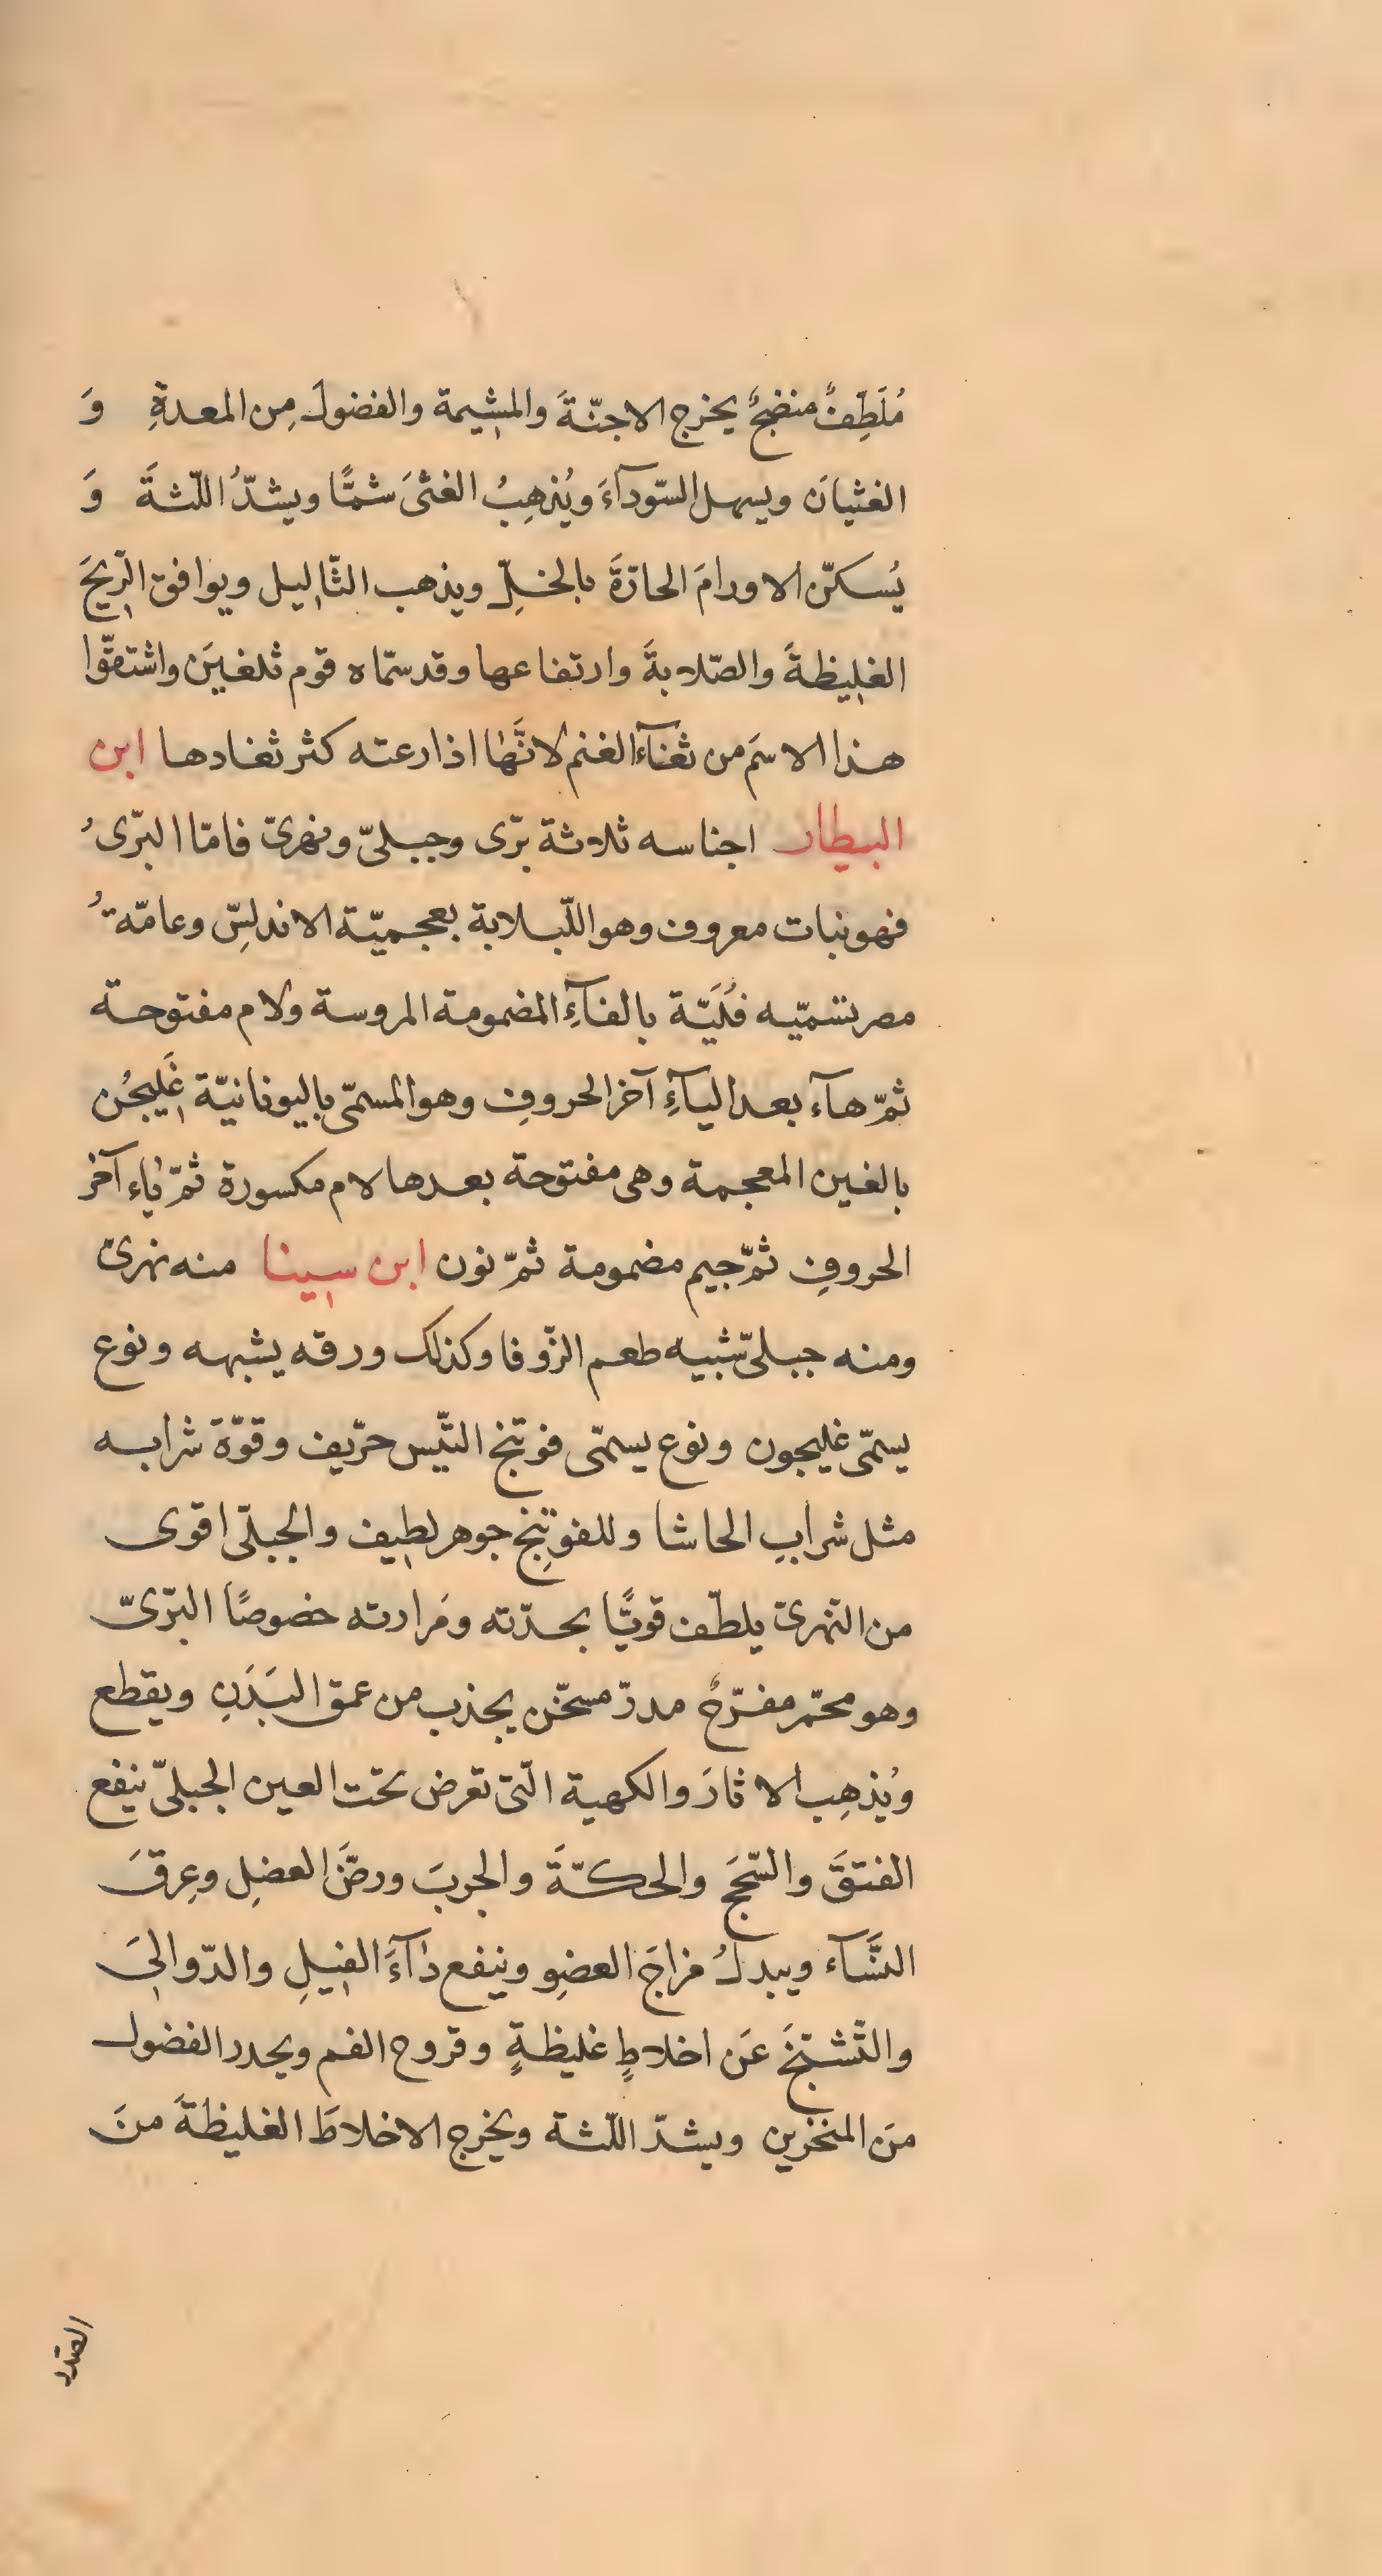 مُلَطِّفٌ منضجٌ يخرج الاجنّةَ والمشيمة والفضولَ مِن المعدةِ وَ
الغثيانَ ويسهل السّودآءَ ويُذهِبُ الغثىَ شمًّا ويشدُّ اللّثةَ وَ
يُسكّن الاورامَ الحارّةَ بالخلِّ ويذهب الثّاليل ويوافق الرّيحَ
الغليظةَ والصّلابةَ وارتفاعها وقد سمّاه قوم ثلغينَ واشتقّوا
هذا الاسمَ من ثغآءِ الغنم لانَّها اذا رعته كثر ثغادها ابن
البيطار اجناسه ثلاثة برّى وجبلىّ ونهرىّ فامّا البرّىُ
فهو نبات معروف وهو اللّبلابة بعجميّة الاندلسِّ وعامّةُ
مصر تسمّيه فُلَيّة بالفآءِ المضمومة المروسة ولام مفتوحة
ثمّ هآء بعد اليآءِ آخر الحروفِ وهو المسمّى باليونانيّة غَلِيجُن
بالغين المعجمة وهى مفتوحة بعدها لام مكسورة ثمّ ياء آخر
الحروفِ ثمّ جيم مضمومة ثمّ نون ابن سينا منه نهرىّ
ومنه جبلىّ شبيه طعم الزّوفا وكذلك ورقه يشبهه ونوع
يسمّى غليجون ونوع يسمّى فوتنج التّيس حرّيف وقوّة شرابه
مثل شرابِ الحاشا وللفوتنج جوهر لطيف والجبلّى اقوى
من النّهرىّ يلطّف قويًّا بحدّته ومَرارته خصوصًا البرّىّ
وهو محمّر مفرّحٌ مدرّ مسخّن يجذب من عمق البَدَنِ ويقطع
ويُذهِب الاثارَ والكهبة الّتى تعرض تحت العين الجبلىّ ينفع
الفتقَ والسّحجَ والحكّةَ والجربَ ورضَّ العضلِ وعِرقَ
النَّسآء ويبدلُ مزاجَ العضوِ وينفع دآءَ الفيلِ والدّوالىَ
والتّشنّجَ عَن اخلاطٍ غليظةٍ وقروح الفم ويحدر الفضول
منَ المنخرين ويشدّ اللّثة ويخرج الاخلاطَ الغليظةَ منَ